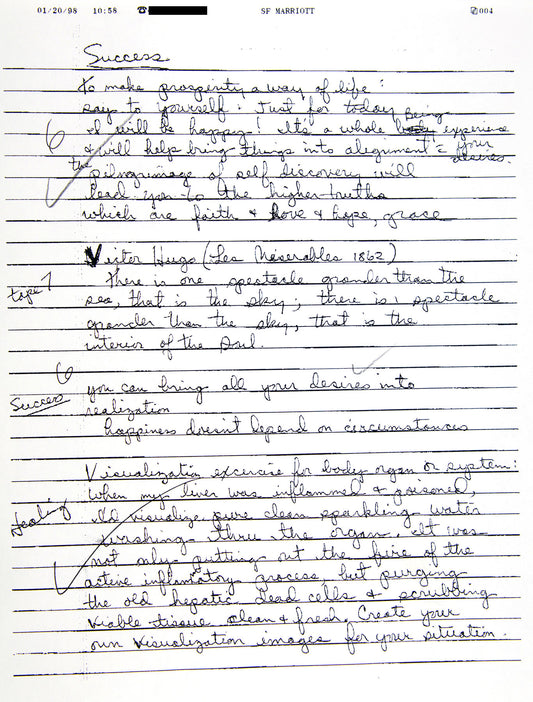 01/20/98 10:58 ☎ SF MARRIOTT 004
Success
To make prosperity a way of life:
say to yourself: Just for today
I will be happy! It's a whole being experience
6 & will help bring things into alignment c̄ your desires.
the pilgrimage of self discovery will
lead you to the higher truths
which are faith & love & hope, grace
Victor Hugo (Les Miserables 1862)
tape 7 There is one spectacle grander than the
sea, that is the sky; there is 1 spectacle
grander than the sky, that is the
interior of the soul.
6 you can bring all your desires into
Success realization
happiness doesn't depend on circumstances
Visualization excercise for body organ or system:
When my liver was inflammed & poisoned,
Healing I'd visualize pure clean sparkling water
washing thru the organ. It was
not only putting out the fire of the
active inflamatory process, but purging
the old hepatic dead cells & scrubbing
viable tissue clean & fresh. Create your
own visualization images for your situation.